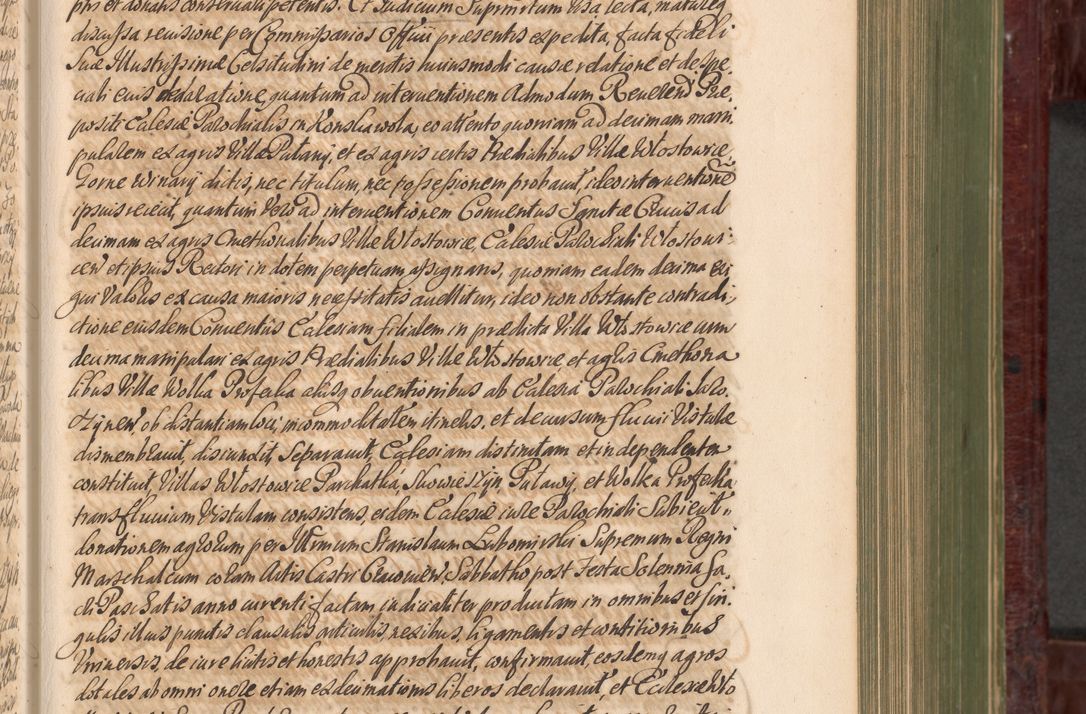 discussa revisione per Commissarios Officii præsentis expedita, facta fideli
Suæ Illustrissimæ Celsitudini de meritis huiusmodi causæ relatione et de spe-
ciali eius declaratione, quantum ad interventionem Admodum Reverendi Præ-
positi Ecclesiæ Parochialis in Konskawola, eo attento quoniam ad decimam mani
pularem ex agris Villæ Pulawy, et ex agris certis Prædialibus Villæ Wlostowice
Gorne Winary dictis, nec titulum, nec possessionem probavit, ideo interventione
ipsius reiecit, quantum Vero ad interventionem Conventus Sanctæ Crucis ad
decimam ex agris Cmethonalibus Villæ Wlostowice, Ecclesiæ Parochiali Wlostowi-
cen et ipsius Rectori in dotem perpetuam assignatis, quoniam eadem decima exi
gui Valoris ex causa maioris necessitatis avellitur, ideo non obstante contradi-
ctione eiusdem Conventus Ecclesiam filialem in prædicta Villa Wlostowice cum
decima manipulari ex agris Prædialibus Villæ Wlostowice et agris Cmethona
libus Villæ Wolka Profecka aliisq obventionibus ab Ecclesia Parochiali
ob distantiam loci, incommoditatem itineris, et decursum fluvii Vistulæ
dismembravit, disiunxit, Separavit, Ecclesiam distinctam et independentem
constituit, Villas Wlostowice Parchatka, Pulawy, et Wolka Profecka
trans fluvium Vistulam consistens, eidem Ecclesiæ iure Parochiali Subiecit,
donationem agrorum per Illrmum Stanislaum Lubomirski Supremum Regni
Marschalcum coram Actis Castri Cracovien Sabbatho post Festa Solennia Sa-
cri Paschatis anno currenti factam iudicialiter productam in omnibus et sin-
gulis illius punctis clausulis articulis, nexibus, ligamentis et conditionibus
Universis, de iure licitis et honestis approbavit, confirmavit, eosdemq agros
dotales ab omni onere etiam ex decimationis liberos declaravit, et Ecclesiæ Wlo